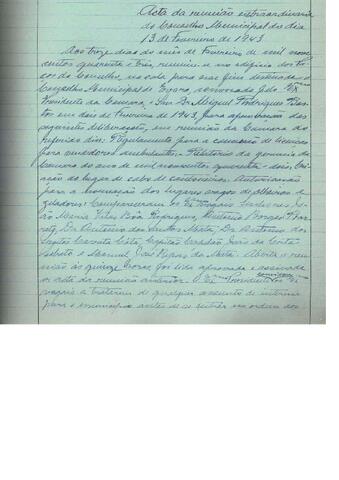 Acta da reunião extraordinaria
do Conselho Municipal do dia
13 de Fevereiro de 1943
Aos treze dias do mês de Fevereiro de mil nove
centos quarenta e três, reuniu-se no edificio dos Pa
ços do Concelho, na sala para esse fim destinada o
Conselho Municipal de convocado pelo Exº
Presidente da Camara, Snr. Dr. Miguel Rodrigues Bas
tos em dois de Fevereiro de 1943, para das
seguintes deliberações, em reunião da Camara do
referido dia: Regulamento para a concessão de licenças
para vendedores ambulantes. Relatorio da gerencia da
Camara do ano de mil novecentos quarenta e dois. Cri
ação do lugar de cabo de cantoneiros. Autorisação
para a nomeação dos lugares vagos de
zeladores. Compareceram os Exºs Vogais Senhores
João Maria Vilas Boa Rodrigues, Antonio Borges
Dr. Antonio dos Santos Dr. Antonio dos
Santos Costa, Capitão João da Costa
e Manuel José da Aberta a reu
nião ás quinze horas foi lida aprovada e assinada
a acta da reunião anterior. O Exº Presidente convidou os
vogais a tratarem de qualquer assunto de interesse
para o municipio antes de se entrar na ordem dos